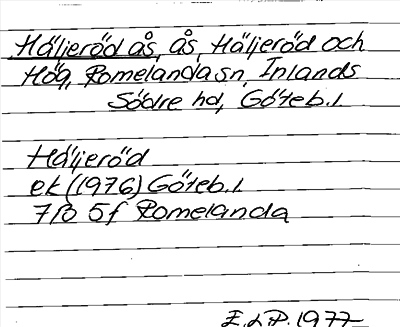 Häljeröd ås, ås, Häljeröd och
Hög, Romelanda sn, Inlands
Södre hd, Göteb. l.
Häljeröd
ek (1976) Göteb. l.
7B 5f Romelanda
E.L.P. 1977